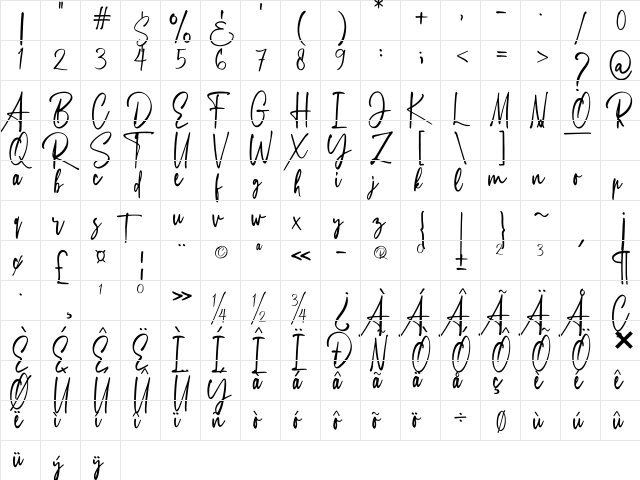 ! " # $ % & ' ( ) * + , - . / 0
1 2 3 4 5 6 7 8 9 : ; < = > ? @
A B C D E F G H I J K L M N O P
Q R S T U V W X Y Z [ \ ] _
a b c d e f g h i j k l m n o p
q r s T u v w x y z { | } ~ ¡
¢ £ ¤ ¦ ¨ © ª « - ® 0 ± 2 3 ´ ¶
· ¸ 1 0 » 1/4 1/2 3/4 ¿ À Á Â Ã Ä Å Ç
È É Ê Ë Ì Í Î Ï Ð Ñ Ò Ó Ô Õ Ö ×
Ø Ù Ú Û Ü Ý à á â ã ä å ç è é ê
ë ì í î ï ñ ò ó ô õ ö ÷ ø ù ú û
ü ý ÿ